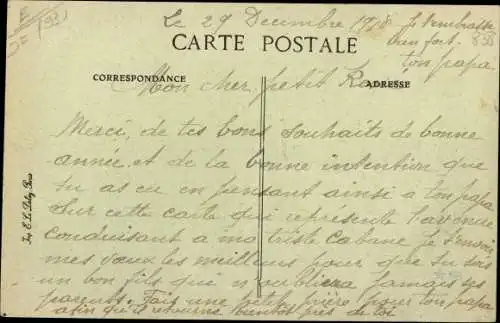 Le 29 Décembre 1918
CARTE POSTALE
CORRESPONDANCE
ADRESSE
Mon cher petit
Merci, de tes bons souhaits de bonne
année et de la bonne intention que
tu as eu en pensant ainsi à ton papa
Sur cette carte qui représente l'avenue
conduisant a ma triste cabane je t'envoie
mes voeux les meilleurs pour que tu sois
un bon fils qui n'oubliera jamais ses
parents. Fais une petite prière pour ton papa
afin qu'il retourne bientôt près de toi
Je t'embrasse
bien fort
ton papa
Imp. E. Le Deley, Paris